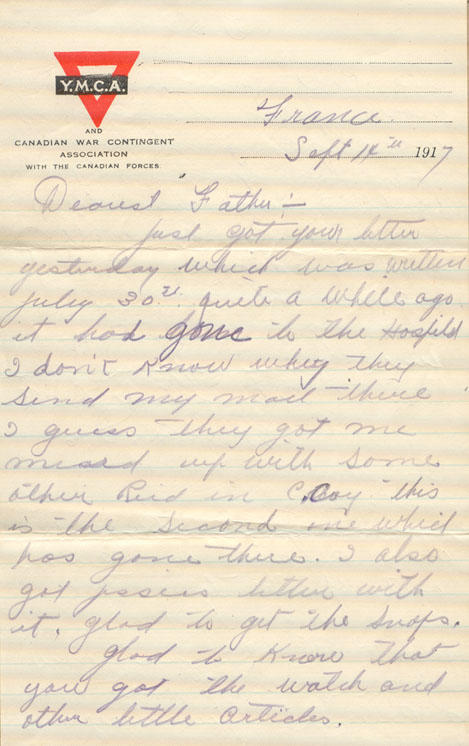 Y.M.C.A.
AND
CANADIAN WAR CONTINGENT
ASSOCIATION
WITH THE CANADIAN FORCES.
France.
Sept 14th 1917
Dearest Father:—
Just got your letter
yesterday which was written
July 30th quite a while ago
it had gone to the Hospital
I don't know why they
send my mail there
I guess they got me
mixed up with some
other Reid in C. Coy this
is the second one which
has gone there. I also
got letter with
it, glad to get the snaps.
Glad to know that
you got the watch and
other little articles.